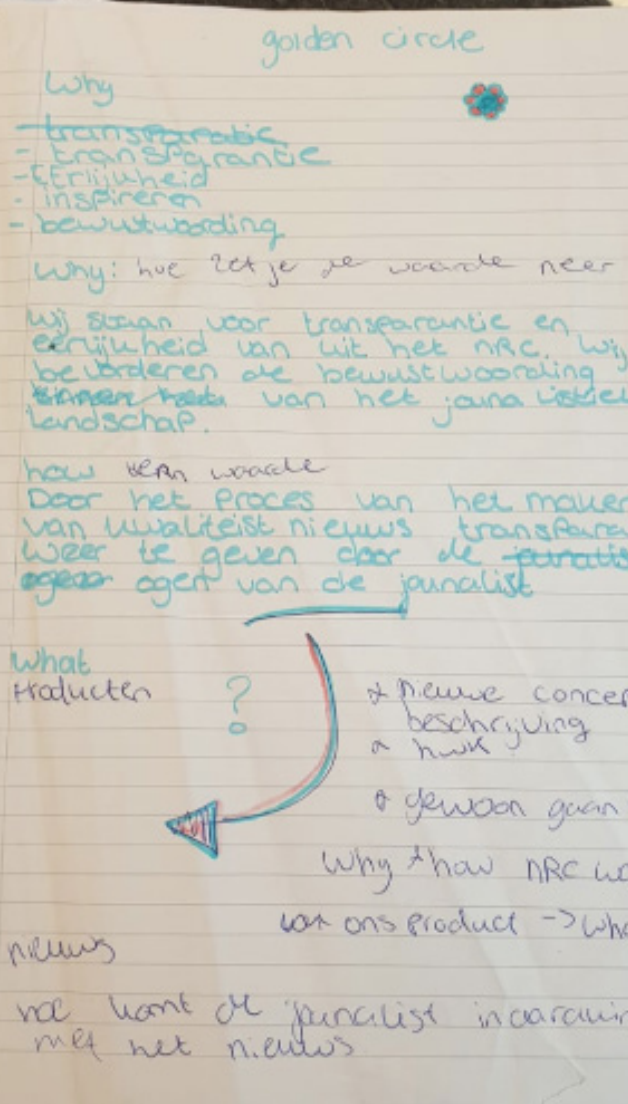 golden circle
Why
transparatie
- transparantie
- EErlijkheid
- inspireren
- bewustwoording
Why: hoe zet je de waarde neer
Wij staan voor transparantie en
eerlijkheid van uit het nRC. Wij
bevorderen de bewustwoording
van het
landschap.
how kern waarde
Door het proces van het maken
van kwaliteist nieuws transpara
weer te geven door de
ogen van de jounalist
What
Producten ?
* nieuwe concep
beschrijving
* hwk
* gewoon gaan
Why + how nRC wo
ons product -> Wha
nieuws
hoe komt de jounalist
met het nieuws